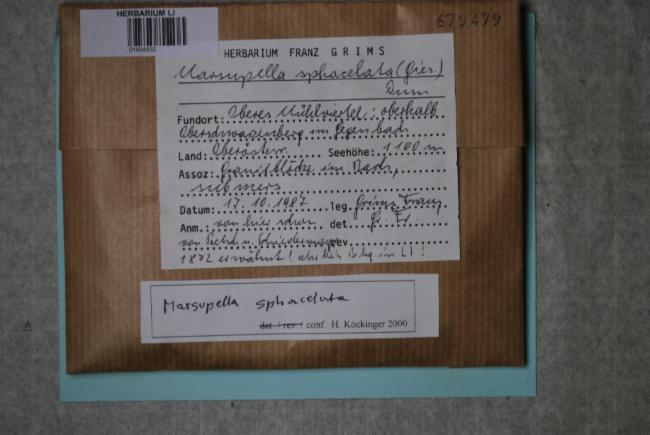 HERBARIUM LI
01654332
679479
HERBARIUM FRANZ GRIMS
Marsupella sphacelata (Gies.)
Dum
Fundort: Oberes Mühlviertel: oberhalb
Oberschwarzenberg im Gegenbach
Land: Oberösterr. Seehöhe: 1100 m
Assoz: Granitblöcke im Bach,
submers
Datum: 17.10.1987 leg. Grims Franz
Anm.: von hier schon det. Gr. Fr.
von Poetsch u. Schiedermayr rev.
1872 erwähnt! aber kein Beleg in LI!
Marsupella sphacelata
det. / rev. / conf. H. Köckinger 2000